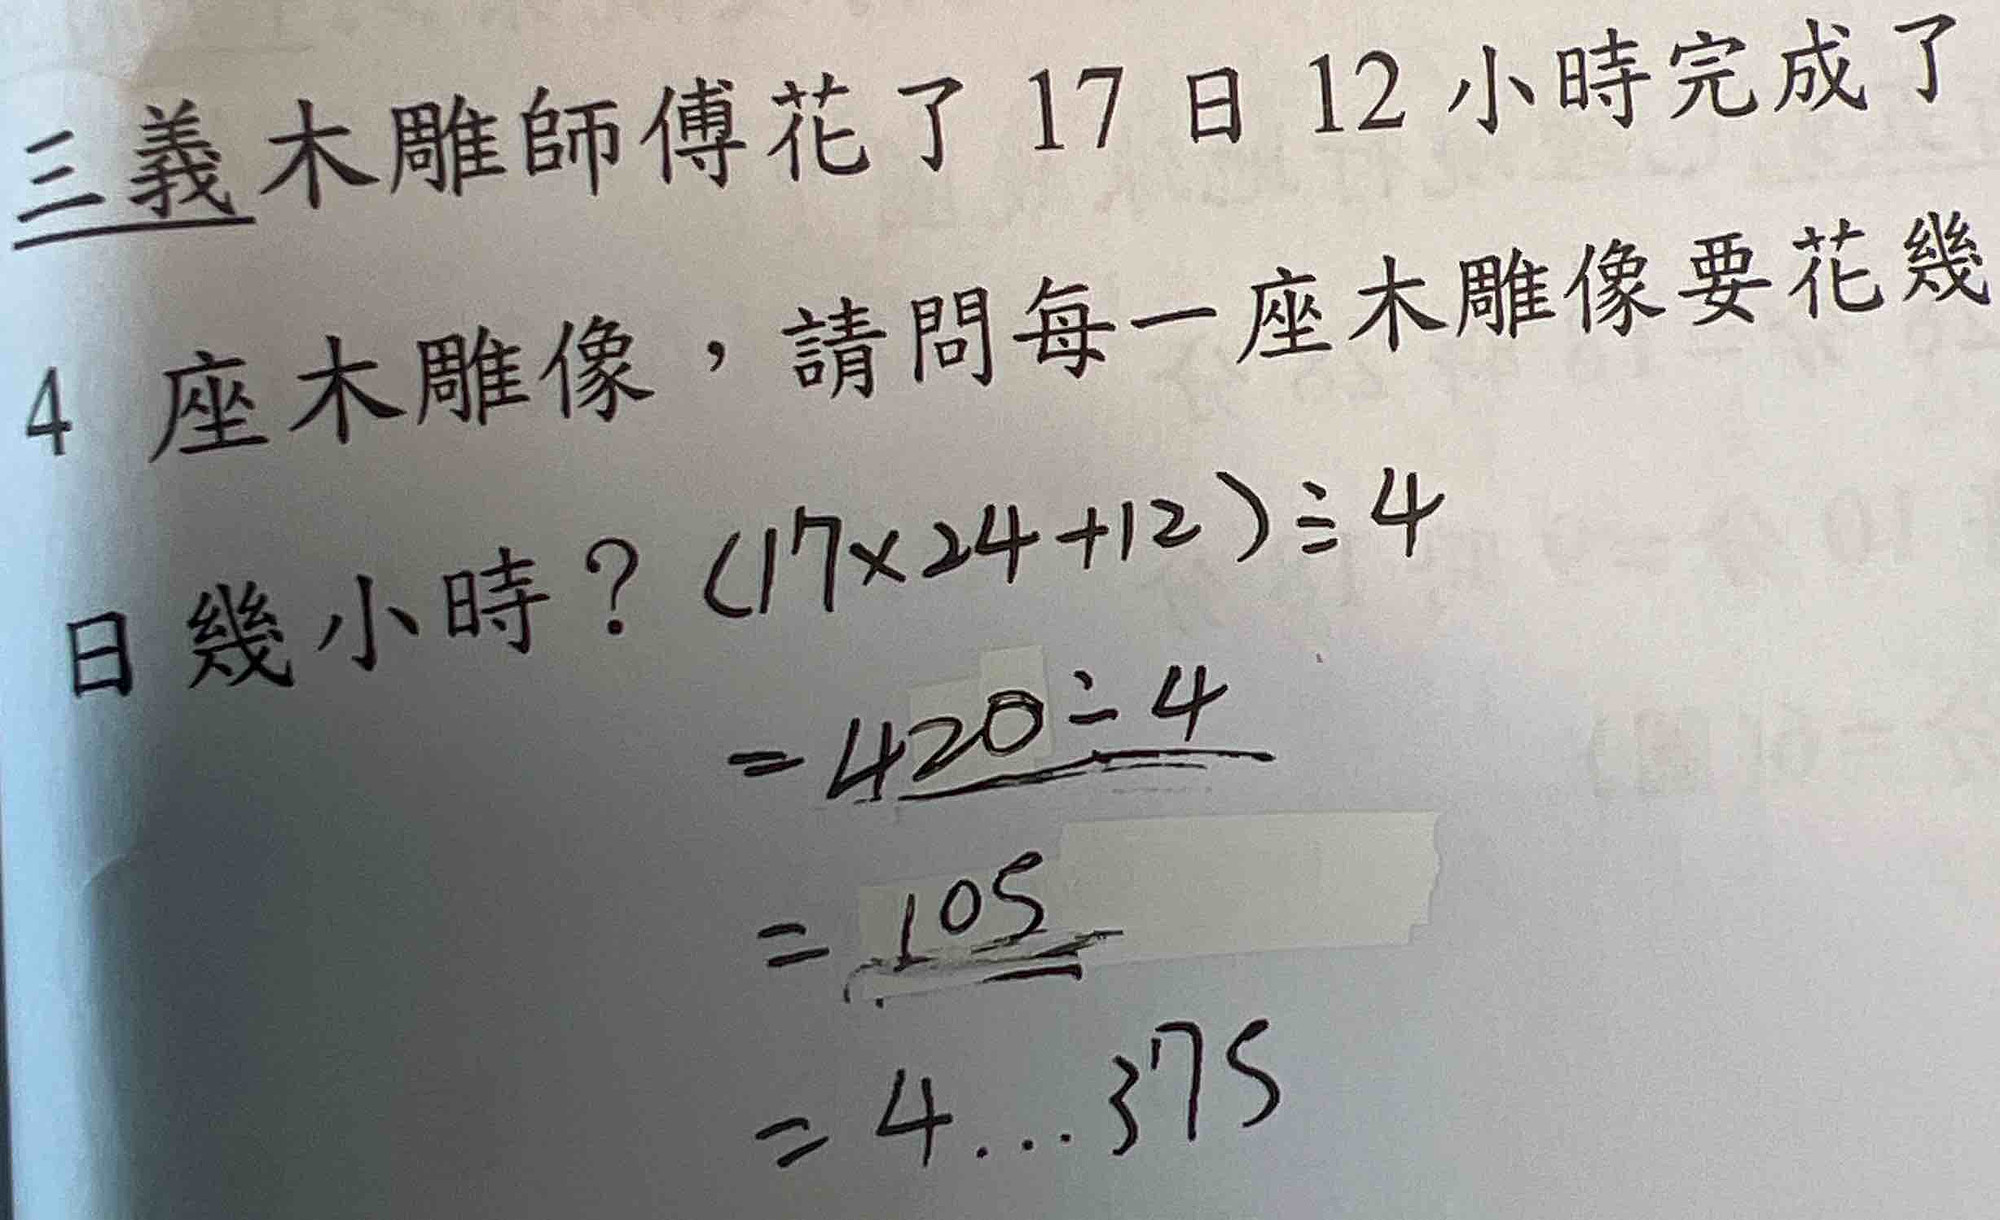 三義木雕師傅花了 17 日 12 小時完成了
4 座木雕像，請問每一座木雕像要花幾
日幾小時？(17×24+12)÷4
=420÷4
=105
=4...375